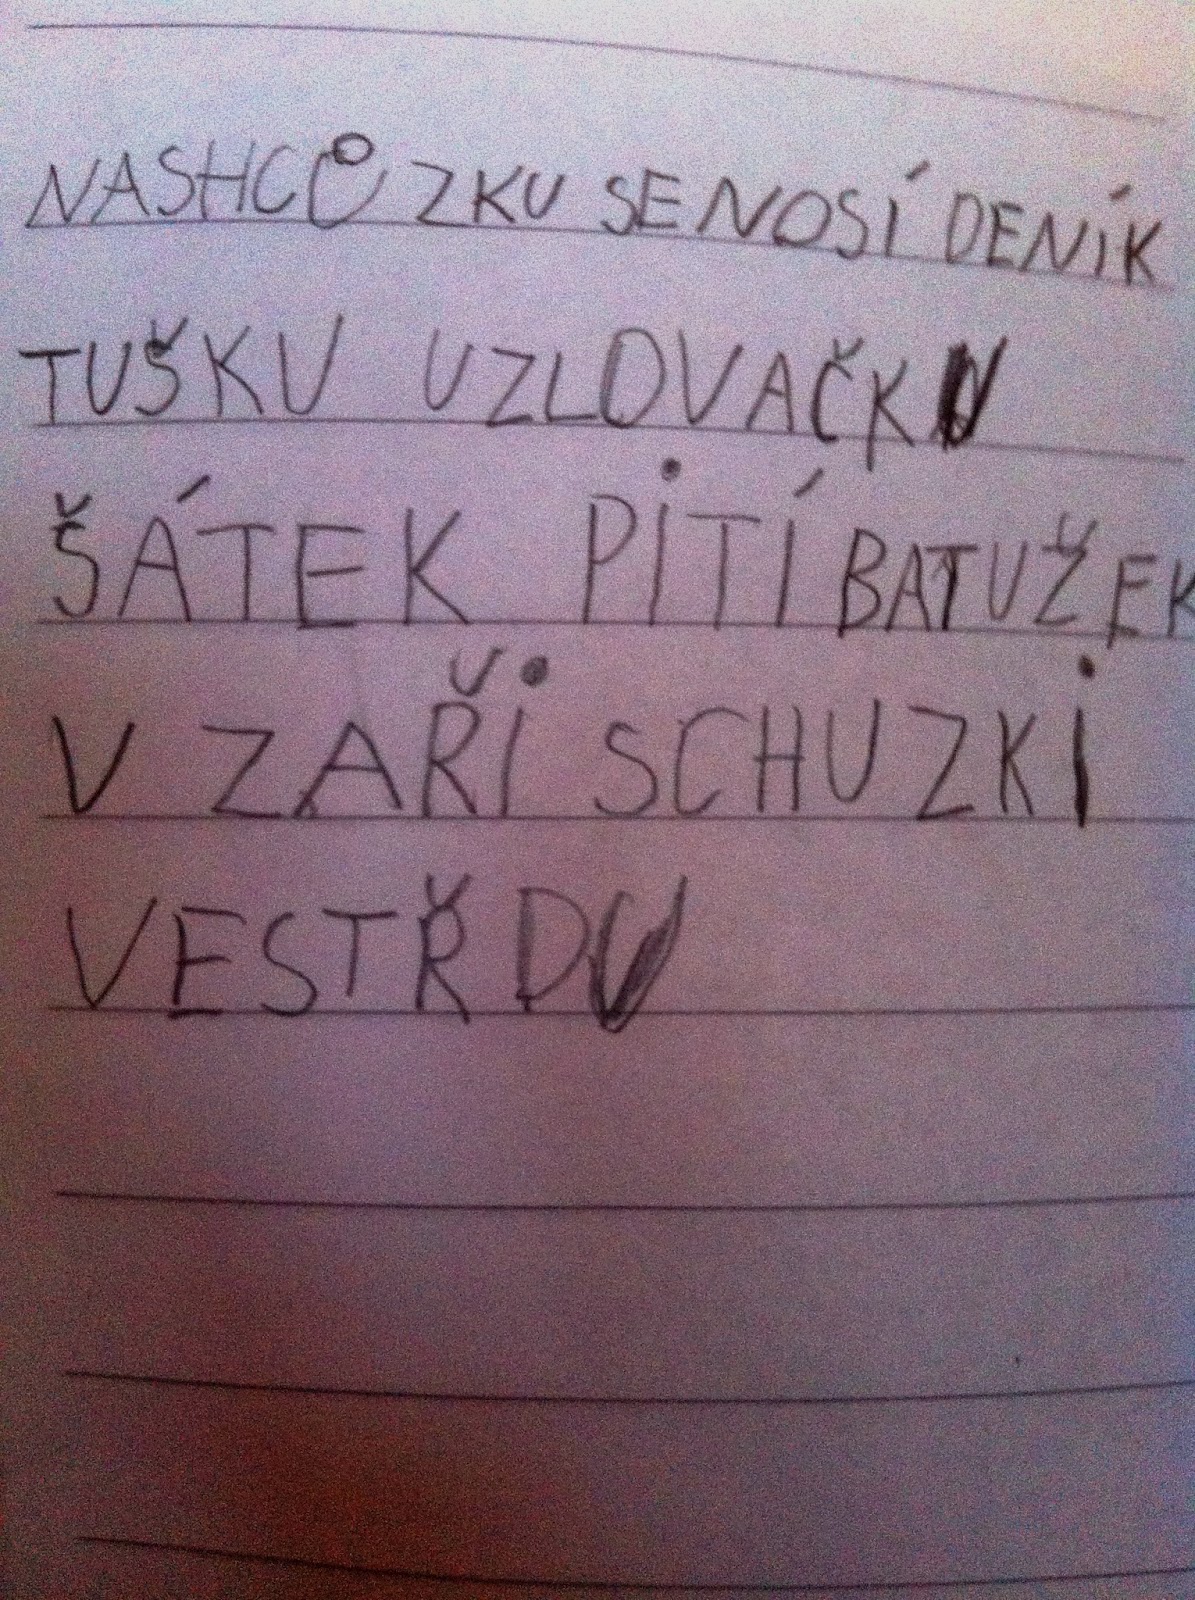 NASHCŮZKU SE NOSÍ DENÍK
TUŠKU UZLOVAČKU
ŠÁTEK PITÍ BATUŽEK
V ZAŘI SCHUZKI
VESTŘDU